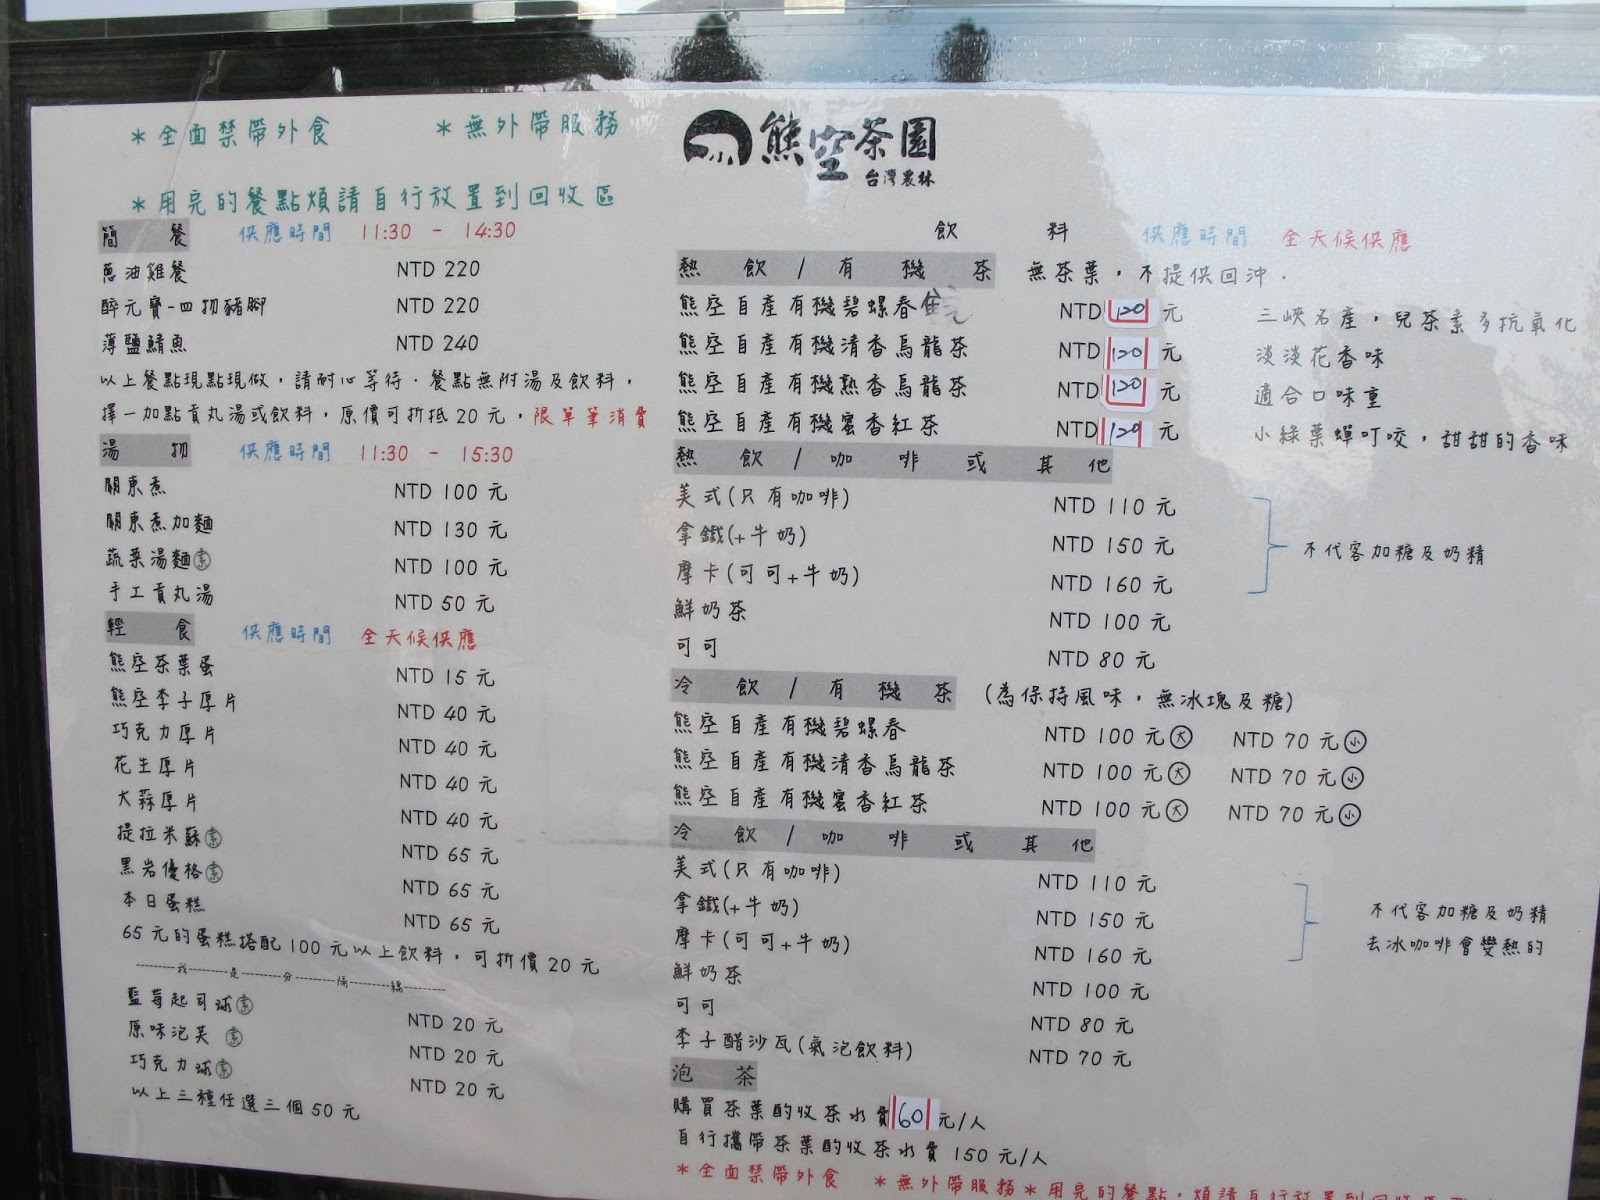 *全面禁帶外食 *無外帶服務
*用完的餐點煩請自行放置到回收區
簡 餐 供應時間 11:30 - 14:30
蔥油雞餐 NTD 220
醉元寶-四物豬腳 NTD 220
薄鹽鯖魚 NTD 240
以上餐點現點現做，請耐心等待．餐點無附湯及飲料，
擇一加點貢丸湯或飲料，原價可折抵20元，限單筆消費
湯 物 供應時間 11:30 - 15:30
關東煮 NTD 100 元
關東煮加麵 NTD 130 元
蔬菜湯麵㊟素 NTD 100 元
手工貢丸湯 NTD 50 元
輕 食 供應時間 全天候供應
熊空茶葉蛋 NTD 15 元
熊空李子厚片 NTD 40 元
巧克力厚片 NTD 40 元
花生厚片 NTD 40 元
大蒜厚片 NTD 40 元
提拉米蘇素 NTD 65 元
黑岩優格素 NTD 65 元
本日蛋糕 NTD 65 元
65元的蛋糕搭配100元以上飲料，可折價20元
--------我--------是--------分--------隔--------線--------
藍莓起司球素 NTD 20 元
原味泡芙 素 NTD 20 元
巧克力球素 NTD 20 元
以上三種任選三個50元
熊空茶園
台灣農林
飲 料 供應時間 全天候供應
熱 飲 / 有 機 茶 無茶葉，不提供回沖．
熊空自產有機碧螺春 售完 NTD 120 元 三峽名產，兒茶素多抗氧化
熊空自產有機清香烏龍茶 NTD 120 元 淡淡花香味
熊空自產有機熟香烏龍茶 NTD 120 元 適合口味重
熊空自產有機蜜香紅茶 NTD 120 元 小綠葉蟬叮咬，甜甜的香味
熱 飲 / 咖 啡 或 其 他
美式(只有咖啡) NTD 110 元
拿鐵(+牛奶) NTD 150 元 不代客加糖及奶精
摩卡(可可+牛奶) NTD 160 元
鮮奶茶 NTD 100 元
可可 NTD 80 元
冷 飲 / 有 機 茶 (為保持風味，無冰塊及糖)
熊空自產有機碧螺春 NTD 100 元大 NTD 70 元小
熊空自產有機清香烏龍茶 NTD 100 元大 NTD 70 元小
熊空自產有機蜜香紅茶 NTD 100 元大 NTD 70 元小
冷 飲 / 咖 啡 或 其 他
美式(只有咖啡) NTD 110 元
拿鐵(+牛奶) NTD 150 元 不代客加糖及奶精
摩卡(可可+牛奶) NTD 160 元 去冰咖啡會變熱的
鮮奶茶 NTD 100 元
可可 NTD 80 元
李子醋沙瓦(氣泡飲料) NTD 70 元
泡 茶
購買茶葉酌收茶水費 60 元/人
自行攜帶茶葉酌收茶水費 150 元/人
*全面禁帶外食 *無外帶服務 *用完的餐點，煩請自行放置到回收區